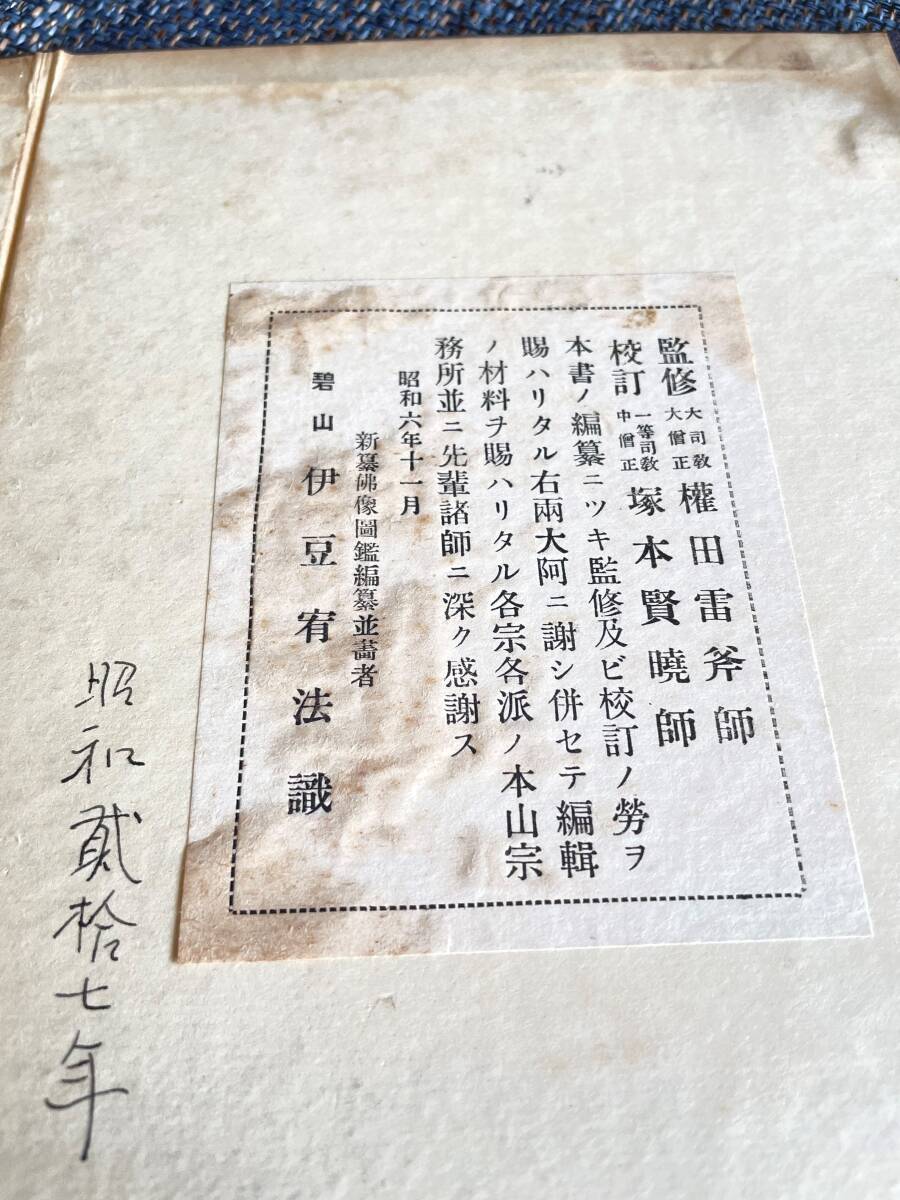 監修 大司教 大僧正 權田雷斧師
校訂 一等司教 中僧正 塚本賢曉師
本書ノ編纂ニツキ監修及ビ校訂ノ勞ヲ
賜ハリタル右兩大阿ニ謝シ併セテ編輯
ノ材料ヲ賜ハリタル各宗各派ノ本山宗
務所並ニ先輩諸師ニ深ク感謝ス
昭和六年十一月
新纂佛像圖鑑編纂並畵者
碧山 伊豆宥法識
昭和貳拾七年